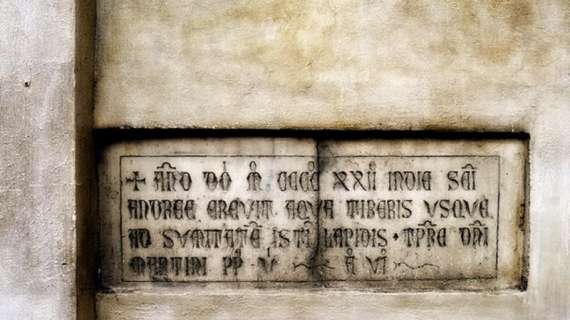 + AÑO DÑI M CCCC XXII IN DIE SCĪ
ANDREE CREVIT AQVA TIBERIS VSQVE
AD SVMITATĒ ISTĪ LAPIDIS · TPRE DÑI
MARTINI PP V A VI